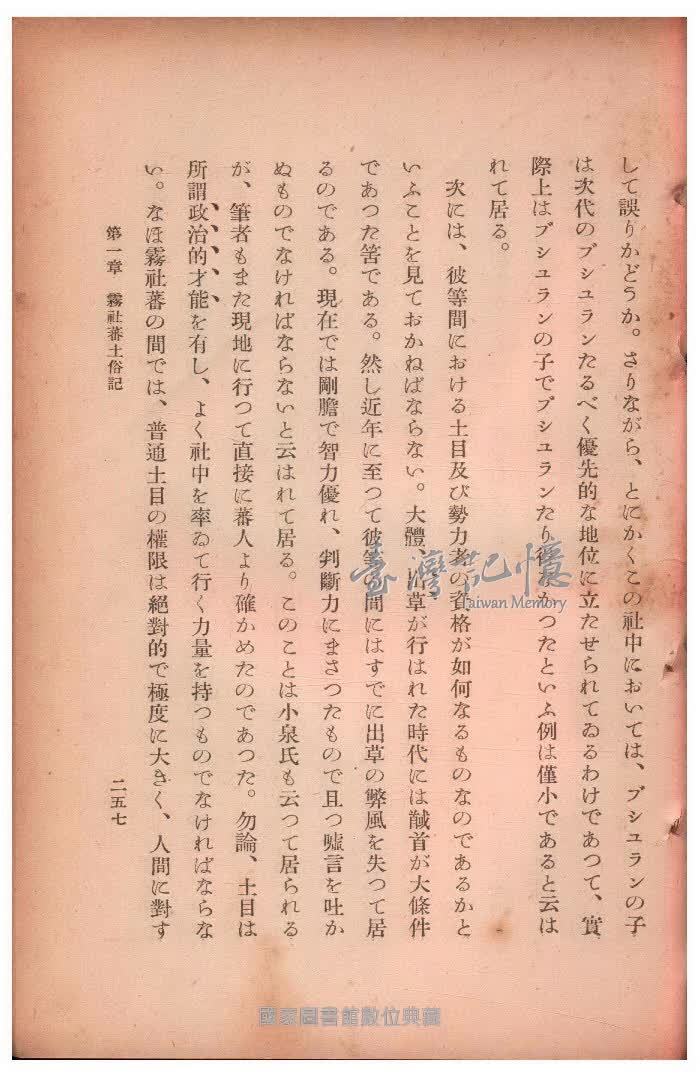 して誤りかどうか。さりながら、とにかくこの社中においては、ブシュランの子
は次代のブシュランたるべく優先的な地位に立たせられてゐるわけであつて、實
際上はブシュランの子でブシュランたり得なかつたといふ例は僅小であると云は
れて居る。
次には、彼等間における土目及び勢力者の資格が如何なるものなのであるかと
いふことを見ておかねばならない。大體、出草が行はれた時代には馘首が大條件
であつた筈である。然し近年に至つて彼等の間にはすでに出草の弊風を失つて居
るのである。現在では剛膽で智力優れ、判斷力にまさつたもので且つ嘘言を吐か
ぬものでなければならないと云はれて居る。このことは小泉氏も云つて居られる
が、筆者もまた現地に行つて直接に蕃人より確かめたのであつた。勿論、土目は
所謂政治的才能を有し、よく社中を率ゐて行く力量を持つものでなければならな
い。なほ霧社蕃の間では、普通土目の權限は絕對的で極度に大きく、人間に對す
第一章 霧社蕃土俗記
二五七
臺灣記憶
Taiwan Memory
國家圖書館數位典藏